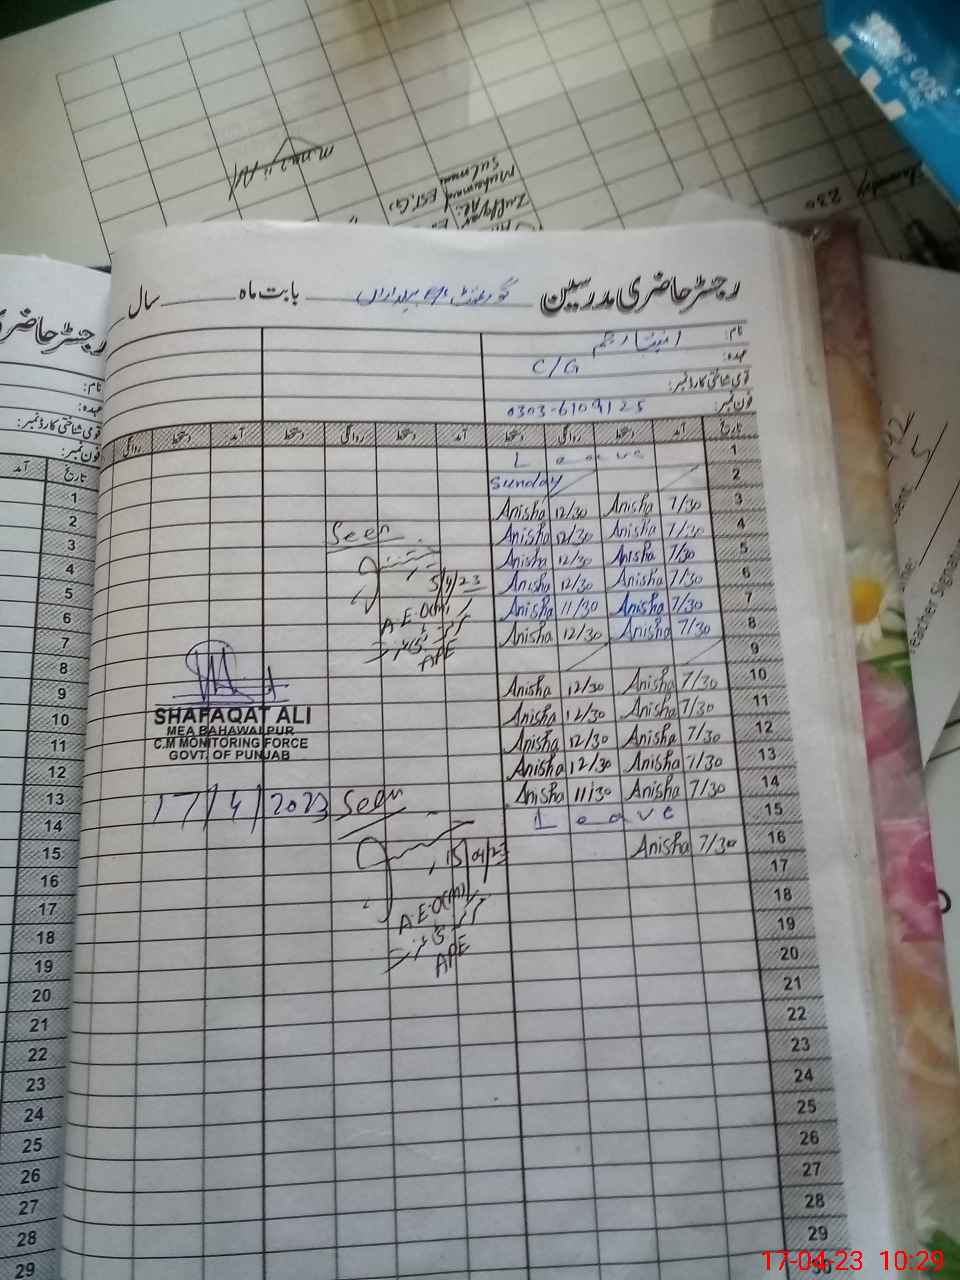 رجسٹر حاضری مدرسین گورنمنٹ بابت ماہ سال
نام:
عہدہ: C/G
قومی شناختی کارڈ نمبر:
فون نمبر: 0303-6109125
تاریخ آمد دستخط روانگی دستخط آمد دستخط روانگی دستخط آمد دستخط روانگی
1 Leave
2 Sunday
3 7/30 Anisha 12/30 Anisha
4 7/30 Anisha 12/30 Anisha
5 7/30 Anisha 12/30 Anisha
6 7/30 Anisha 12/30 Anisha
7 7/30 Anisha 11/30 Anisha
8 7/30 Anisha 12/30 Anisha
9
10 7/30 Anisha 12/30 Anisha
11 7/30 Anisha 12/30 Anisha
12 7/30 Anisha 12/30 Anisha
13 7/30 Anisha 12/30 Anisha
14 7/30 Anisha 11/30 Anisha
15 Leave
16 7/30 Anisha
17
18
19
20
21
22
23
24
25
26
27
28
29
30
Seen
5/4/23
A.E.O(M)
APE
SHAFAQAT ALI
MEA BAHAWALPUR
C.M MONITORING FORCE
GOVT. OF PUNJAB
17/4/2023
Seen
15/04/23
A.E.O(M)
APE
رجسٹر حاضری
نام:
عہدہ:
قومی شناختی کارڈ نمبر:
فون نمبر:
تاریخ آمد
1
2
3
4
5
6
7
8
9
10
11
12
13
14
15
16
17
18
19
20
21
22
23
24
25
26
27
28
29
Muhammad EST.G)
230
500
17-04-23 10:29